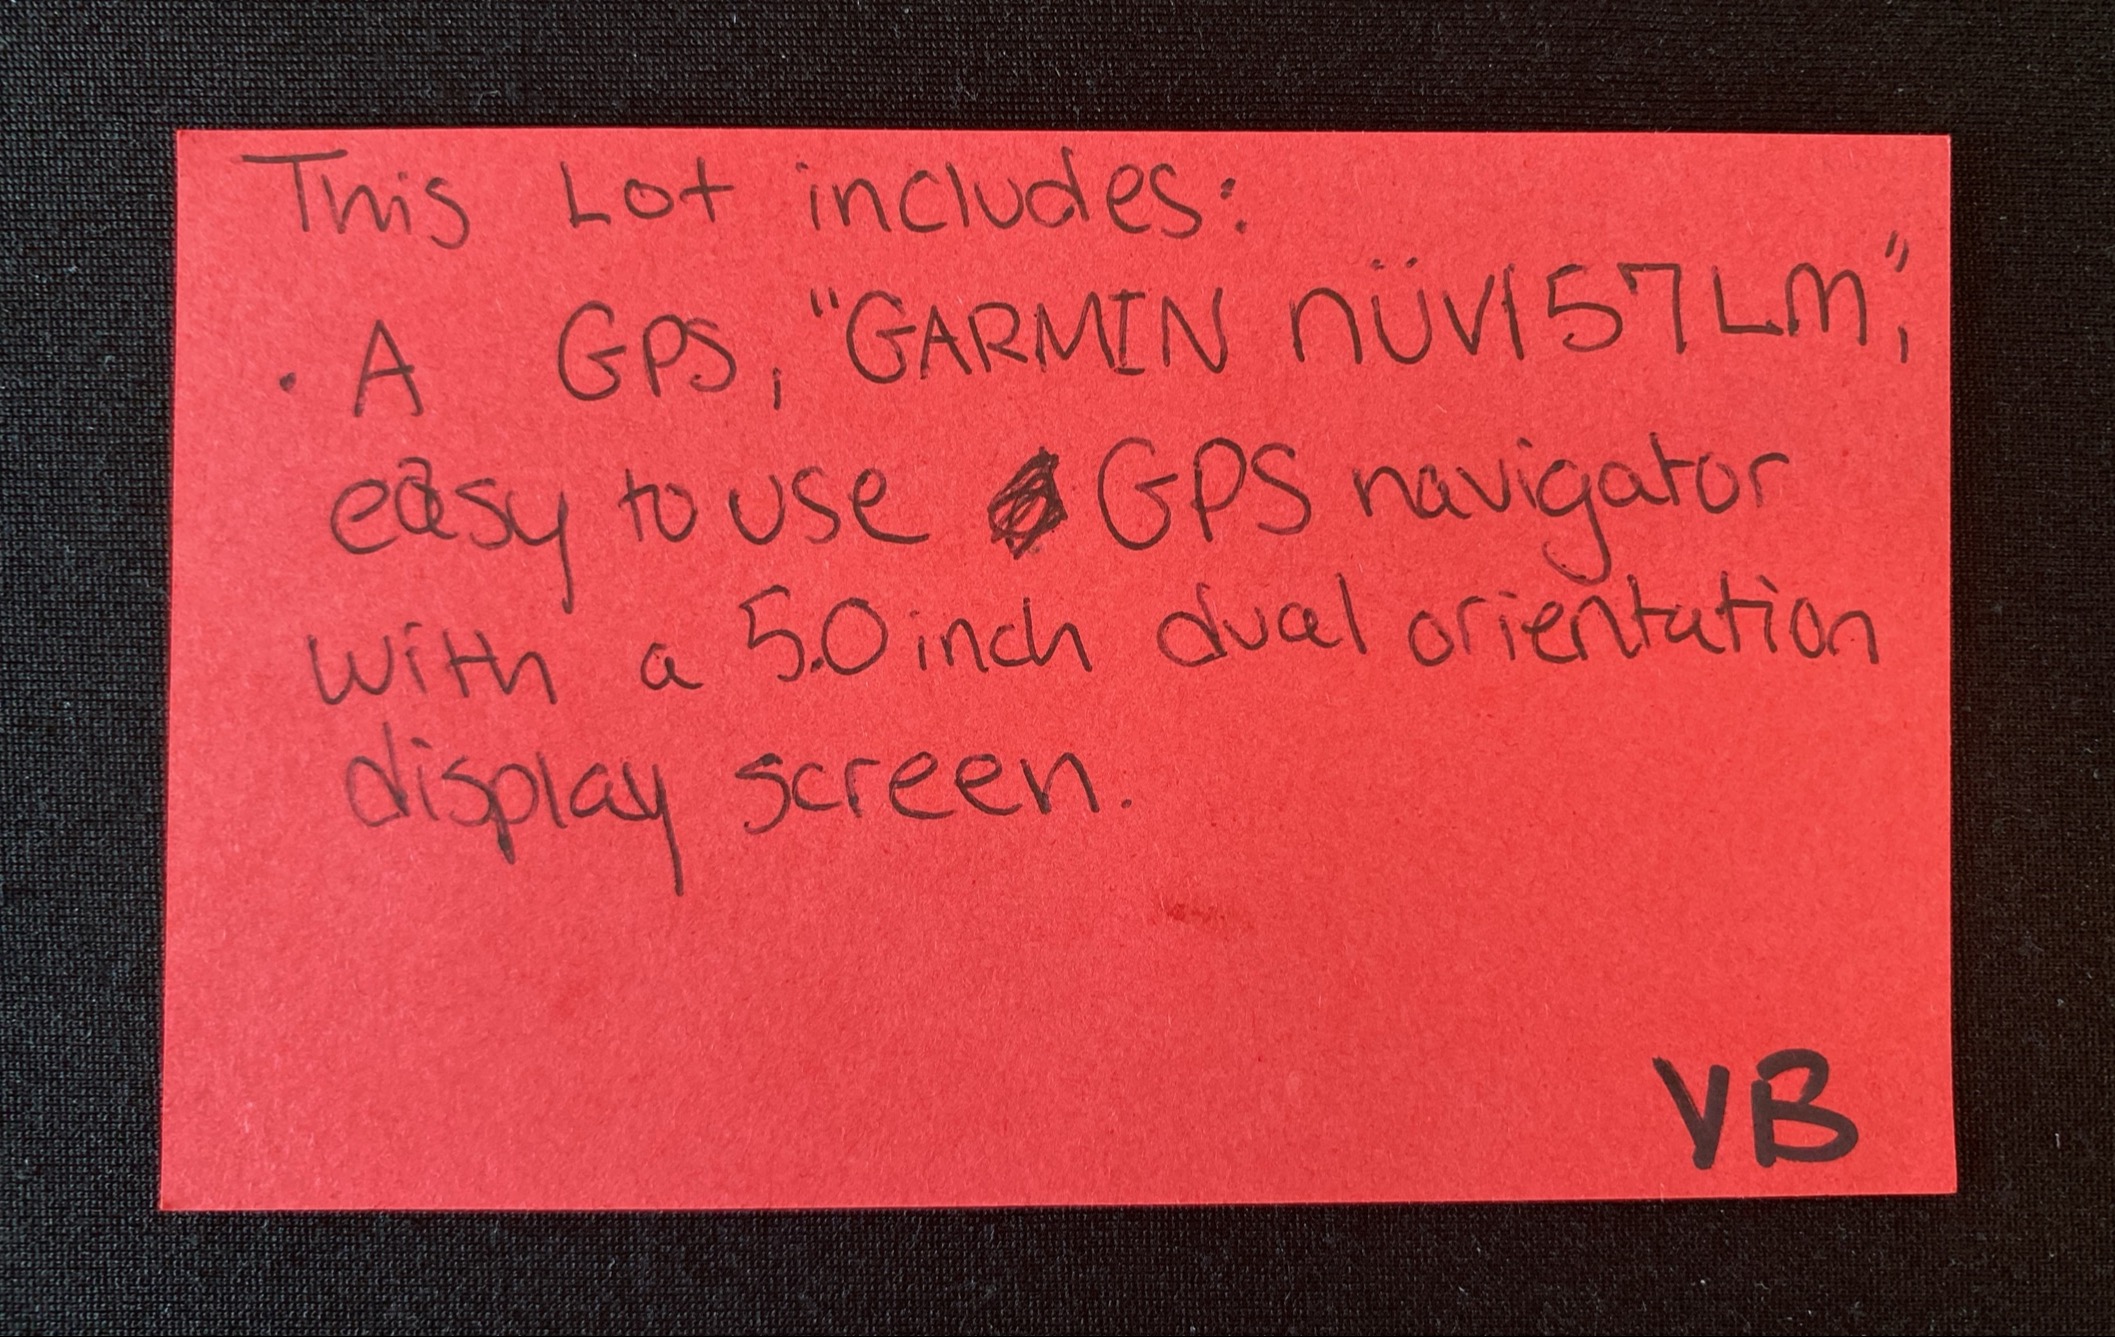 This Lot includes:
· A GPS, "GARMIN NÜVI 57LM",
easy to use GPS navigator
with a 5.0 inch dual orientation
display screen.
VB